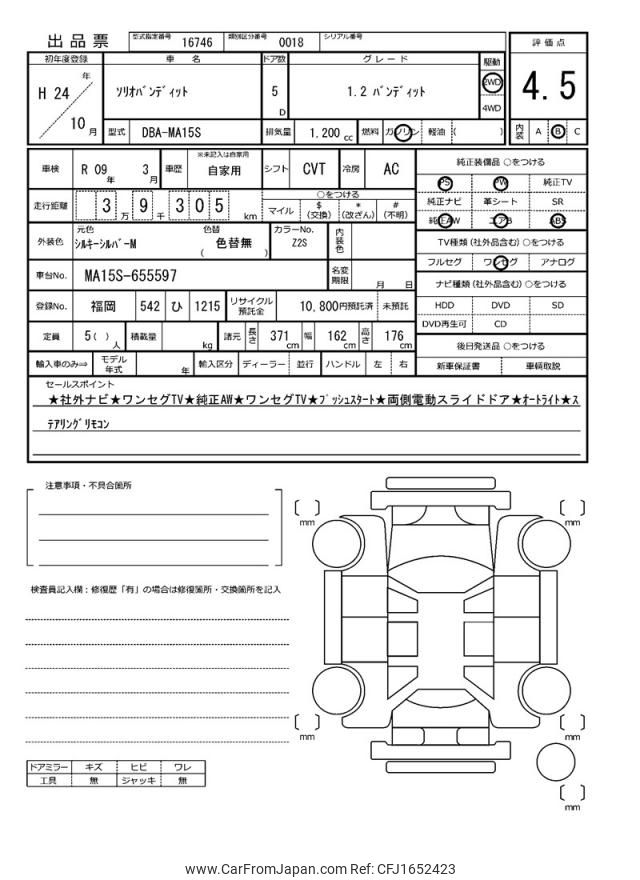 出品票 型式指定番号 16746 類別区分番号 0018 シリアル番号
初年度登録 車 名 ドア数 グレード 駆動 評価点
H 24 年 10 月 ソリオバンディット 5 D 1.2 バンディット 2WD 4WD 4.5
型式 DBA-MA15S 排気量 1,200 cc 燃料 ガソリン 軽油 ( ) 内装 A B C
車検 R 09 年 3 月 車歴 ※未記入は自家用 自家用 シフト CVT 冷房 AC
純正装備品 ○をつける
PS PW 純正TV
純正ナビ 革シート SR
純正AW エアB ABS
走行距離 3 9 万 千 3 0 5 km ○をつける マイル $ (交換) * (改ざん) # (不明)
外装色 元色 シルキーシルバーM 色替 ( 色替無 ) カラーNo. Z2S 内装色
TV種類 (社外品含む) ○をつける
フルセグ ワンセグ アナログ
車台No. MA15S-655597 名変期限 月 日
ナビ種類 (社外品含む) ○をつける
HDD DVD SD
DVD再生可 CD
登録No. 福岡 542 ひ 1215 リサイクル預託金 10,800円預託済 未預託
定員 5 ( ) 人 積載量 kg 諸元 長さ 371 cm 幅 162 cm 高さ 176 cm
後日発送品 ○をつける
新車保証書 車輌取説
輸入車のみ⇒ モデル年式 年 輸入区分 ディーラー 並行 ハンドル 左 右
セールスポイント
★社外ナビ★ワンセグTV★純正AW★ワンセグTV★プッシュスタート★両側電動スライドドア★オートライト★ス
テアリングリモコン
注意事項・不具合箇所
検査員記入欄：修復歴「有」の場合は修復箇所・交換箇所を記入
ドアミラー キズ ヒビ ワレ
工具 無 ジャッキ 無
[ ] mm
[ ] mm
[ ] mm
[ ] mm
[ ] mm
www.CarFromJapan.com Ref: CFJ1652423